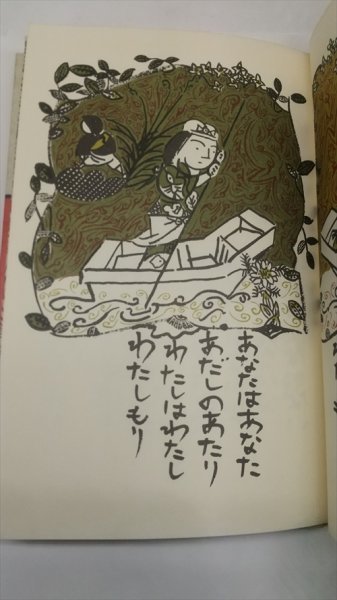 あなたはあなた
あだしのあたり
わたしはわたし
わたしもり